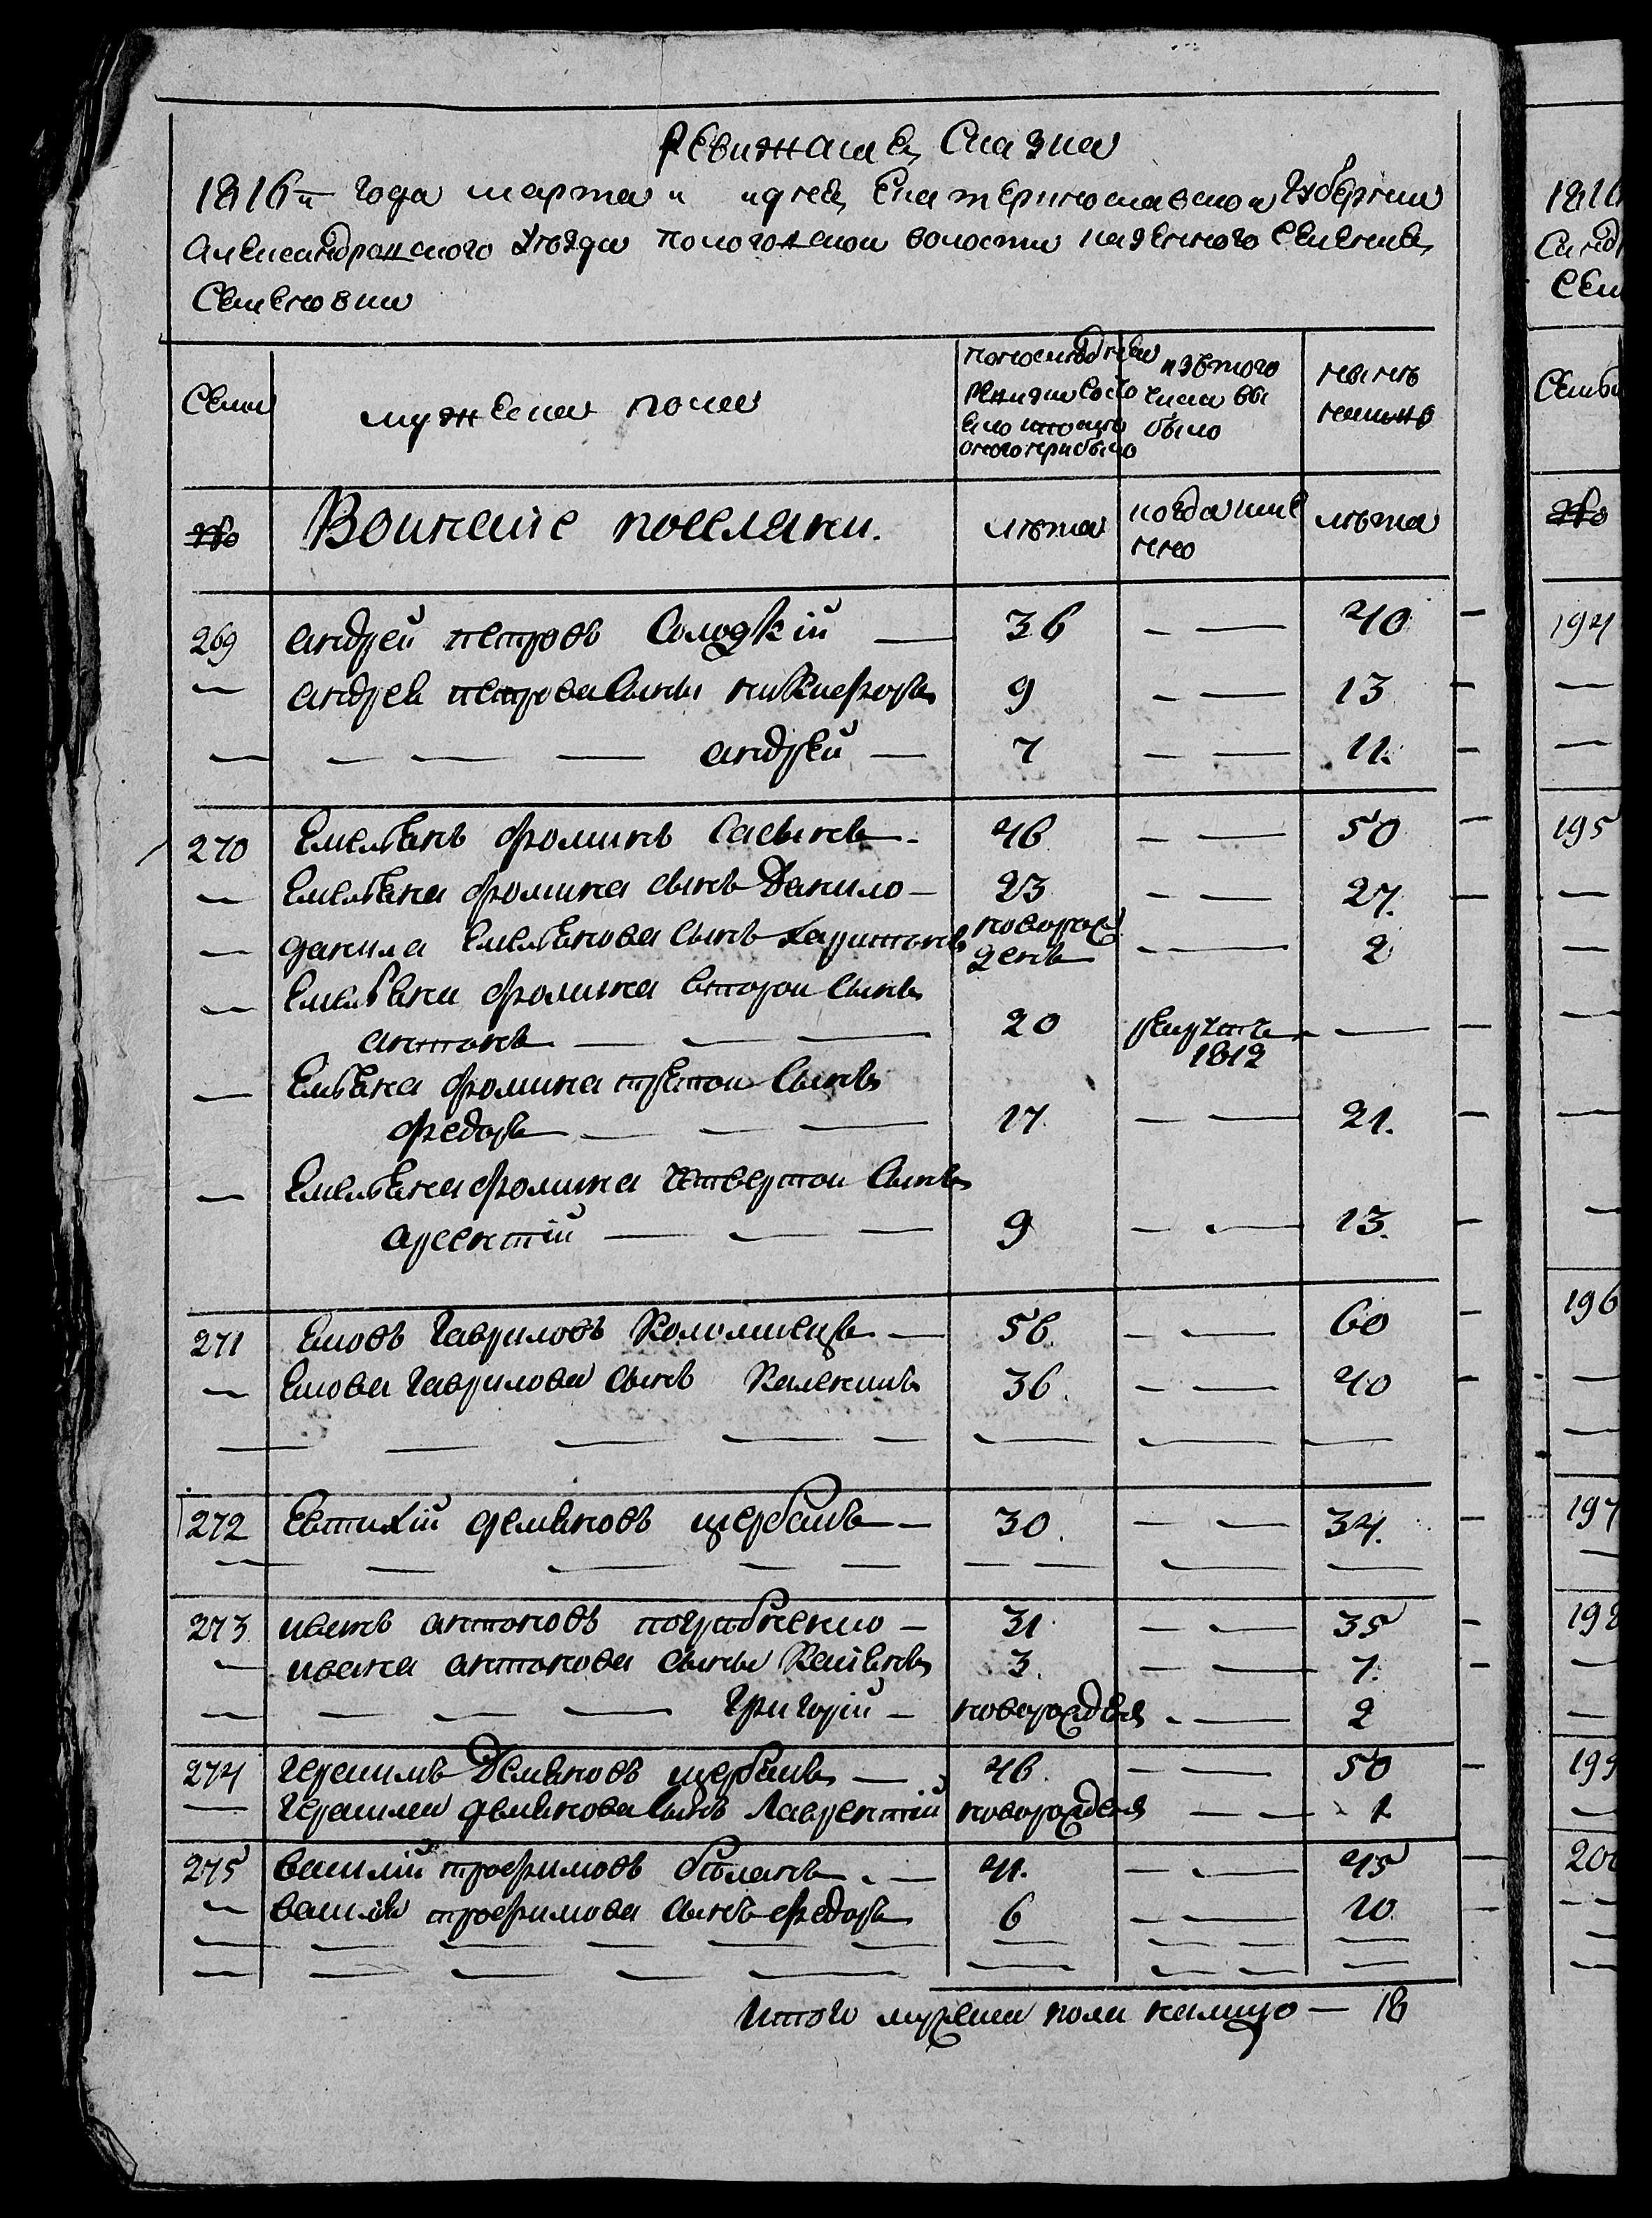 Ревижская Сказка
1816го года марта и дня Екатеринославской Губернии
Александровского уезда Пологовской волости казенного Селения
Семеновки
Семьи
мужеска пола
по последней
ревизии состо
яло и после
оного прибыло
из этого
числа вы
было
ныне
налицо
№
Воинские поселяне.
лета
когда имен
но
лета
269 андрей петровъ Солодкiй — 36 — — 40 —
— андрея петрова сыны никифоръ 9 — — 13 —
— — — — андрей — 7 — — 11. —
270 Емельянъ фоминъ Савынъ 46 — — 50 —
— Емельяна фомина сынъ данило — 23 — — 27. —
— данила Емельянова сынъ харитонъ новорож
денъ — 2
— Емельяна фомина второй сынъ
антонъ — — — 20 рекрутъ — —
1812
— Емельяна фомина третой сынъ
федоръ — — — 17. — — 21. —
— Емельяна фомина четвертой сынъ
арсентiй — — — 9 — — 13. —
271 Еловъ гавриловъ Коломиецъ — 56. — — 60 —
— Елова гаврилова сынъ Каленикъ 36. — — 40 —
272 Евтихiй демяновъ щербакъ — 30. — — 34. —
273 иванъ антоновъ погребненко — 31 — — 35 —
— ивана антонова сыны Касiянъ 3. — — 7. —
— — — — григорiй — новорожденъ — 2
274 герасимъ демяновъ щербакъ — 46. — — 50 —
— герасима демянова сынъ лаврентiй новорожденъ — — 1
275 василiй трофимовъ — 41. — — 45 —
— василiя трофимова сынъ федоръ 6 — — 10. —
Итого мужеска пола налицо — 18
1816
Семьи
№
194
195
196
197
198
199
200